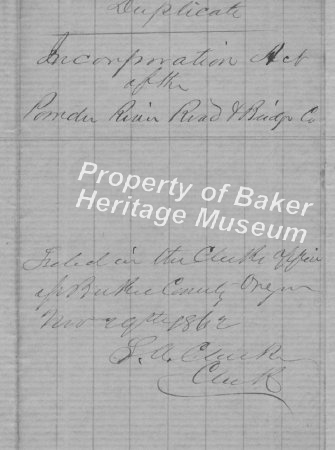 Duplicate
Incorporation Act
of the
Powder River Road & Bridge Co
Property of Baker
Heritage Museum
Filed in the Clerks office
of Baker County Oregon
Nov 29th 1862
Clerk